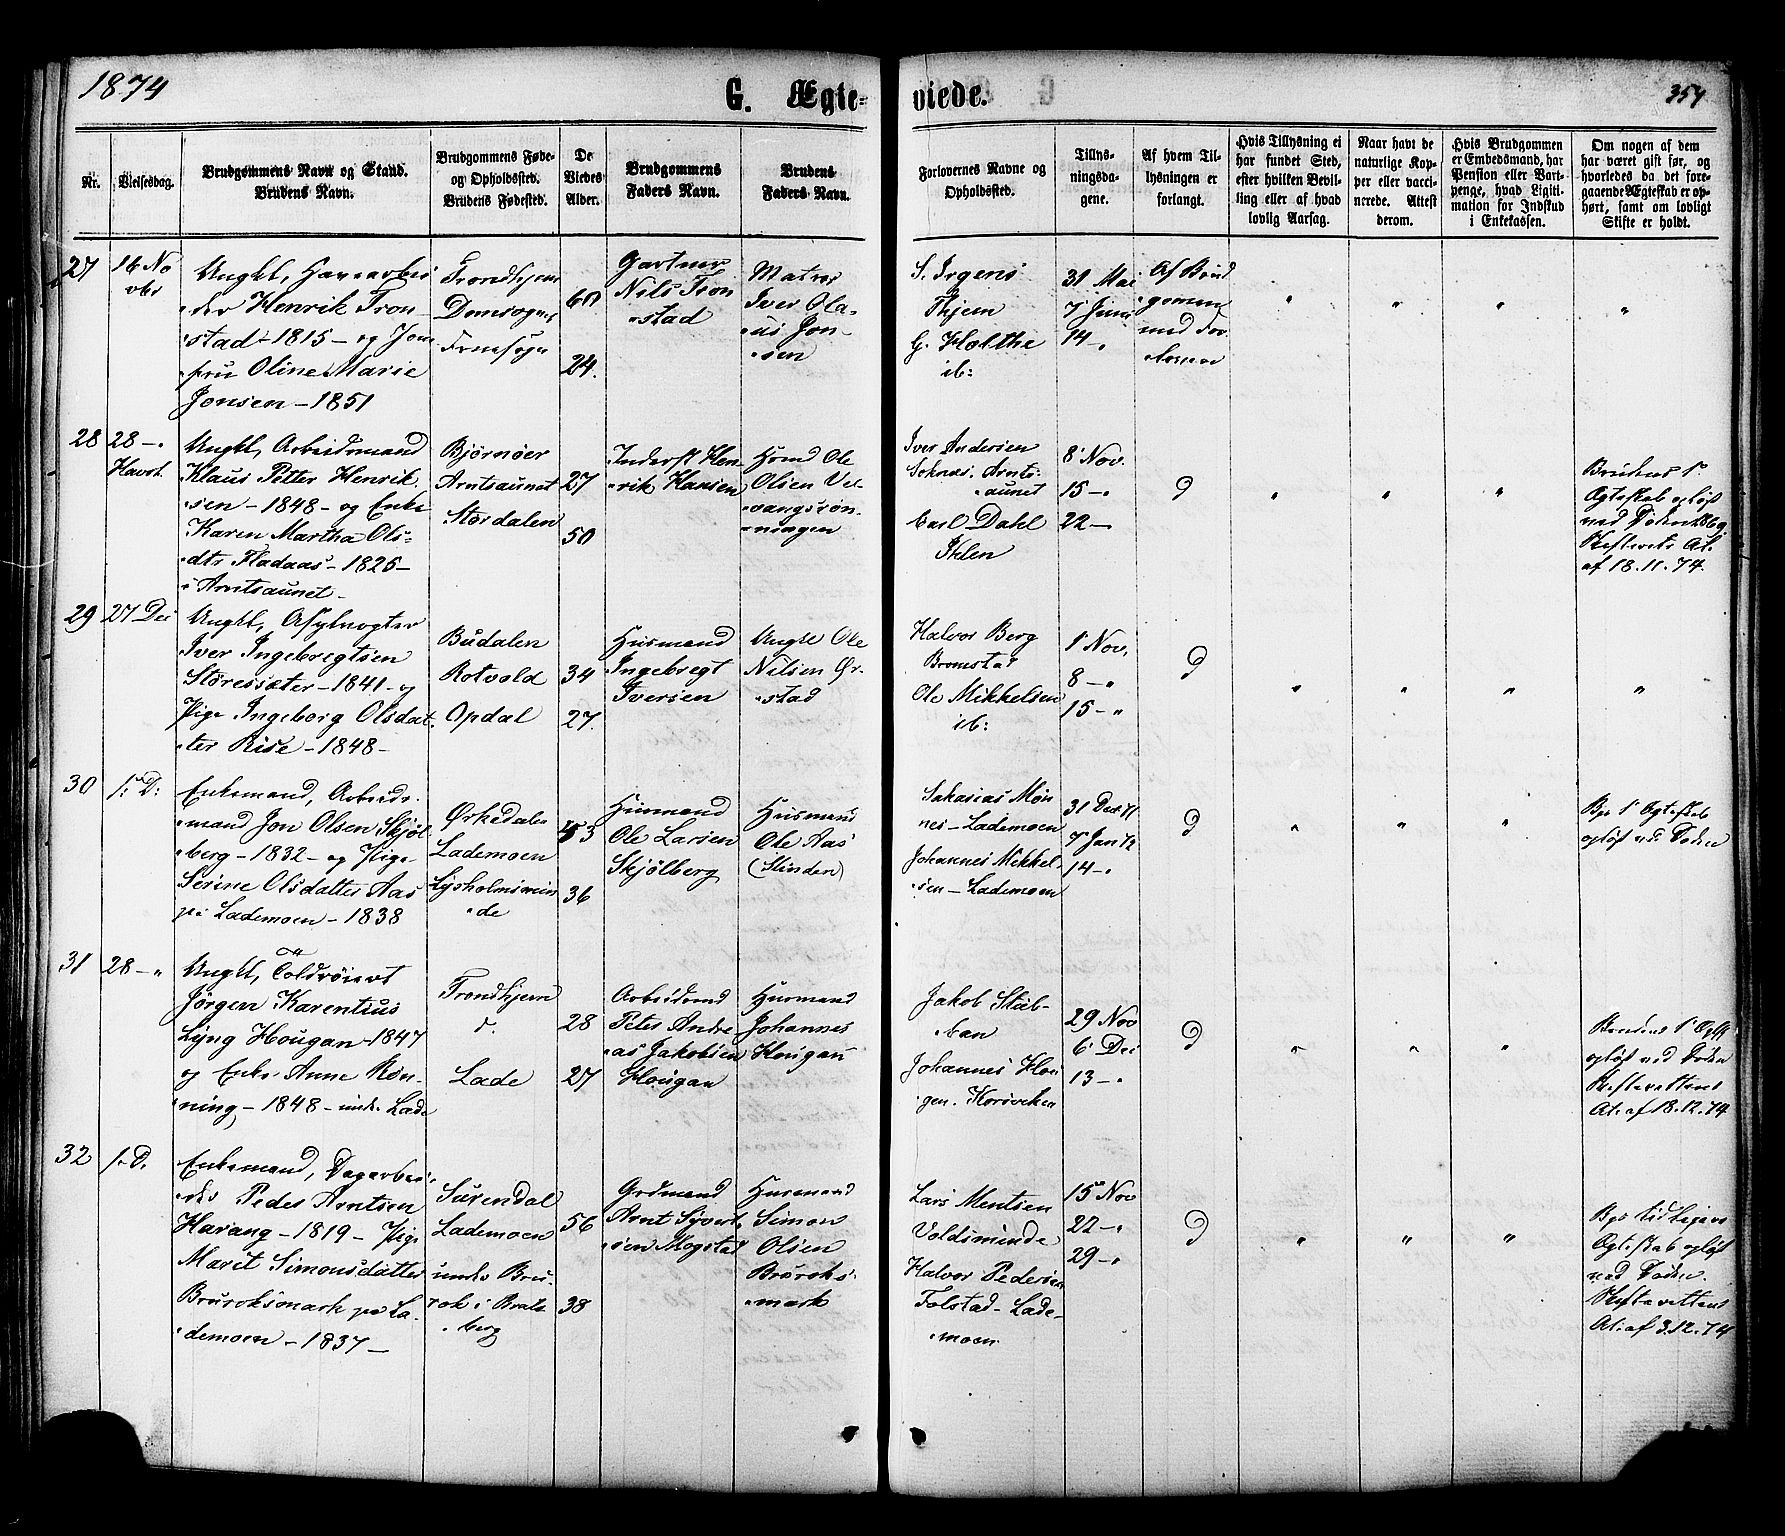 1874
G. Ægte-
viede.
354
Nr.
Vielsesdag.
Brudgommens Navn og Stand.
Brudens Navn.
Brudgommens Føde-
og Opholdssted.
Brudens Fødested.
De
Viedes
Alder.
Brudgommens
Faders Navn.
Brudens
Faders Navn.
Forlovernes Navne og
Opholdssted.
Tillys-
ningsda-
gene.
Af hvem Til-
lysningen er
forlangt.
Hvis Tillysning ei
har fundet Sted,
efter hvilken Bevil-
ling eller af hvad
lovlig Aarsag.
Naar havt de
naturlige Kop-
per eller vacci-
nerede. Attest
derom.
Hvis Brudgommen
er Embedsmand, har
Pension eller Vart-
penge, hvad Ligiti-
mation for Indskud
i Enkekassen.
Om nogen af dem
har været gift før, og
hvorledes da det fore-
gaaende Ægteskab er op-
hørt, samt om lovligt
Skifte er holdt.
27
16 No
vbr
Ungkl, Havearbei
der Henrik Tron-
stad - 1815 - og Jom
fru Oline Marie
Jonsen - 1851
Trondhjem
Domsogn
60
24.
Gartner
Nils Tron
stad
Matros
Iver Ola-
us Jon-
sen
S. Irgens
Thjem
G. Holthe
ib:
31 Mai
7 Juni
14 - "
Af Brud
gommen
med For
loverne
" " " "
28
28 - "
Ungkl, Arbeidsmand
Klaus Petter Henrik
sen - 1848 - og Enke
Karen Martha Ols-
dtr Fladaas - 1825 -
i Arntsaunet -
Bjørnøer
Arntsaunet
Størdalen
27
50
Inderst Hen
rik Hansen
Hsmd Ole
Olsen Vel-
vangsrøn-
ningen
Iver Andersen
Soknes. Arnts-
aunet
Carl Dahl
Ihlen
8 Nov.
15 - "
22 -
D
" " "
Brudens 1'
Ægteskab opløst
ved Døden 1869
Skifterets At.
af 18.11.74.
29
27 Dec
Ungkl, Asylvogter
Iver Ingebregtsen
Støressæter - 1841 - og
Pige Ingeborg Olsdat-
ter Rise - 1848 -
Budalen
Rotvold
Opdal
34
27.
Husmand
Ingebregt
Iversen
Ungkl Ole
Nilsen Ør-
stad
Halvor Berg
Bromstad
Ole Mikkelsen
ib:
1' Nov.
8 - "
15 - "
D
" " " "
30
s: D:
Enkemand, Arbeids-
mand Jon Olsen Skjøl
berg - 1832 - og Pige
Serine Olsdatter Aas
på Lademoen - 1838
Ørkedalen
Lademoen
Lysholmsmin
de
43
36
Husmand
Ole Larsen
Skjølberg
Husmand
Ole Aas
(Stinden)
Sakarias Møn
nes - Lademoen
Johannes Mikkel-
sen - Lademoen
31 Dec 71
7 Jan 72
14 - "
D
" " "
Bgs 1' Ægteskab
opløst v. Døden
31
28 - "
Ungkl, Toldrøiert
Jørgen Karentius
Lyng Hougan - 1847
og Enke Anne Røn-
ning - 1848 - under Lade
Trondhjem
d.
Lade
28
27
Arbeidsmd
Peter Andre
as Jakobsen
Hougan
Husmand
Johannes
Hougan
Jakob Stub-
ban
Johannes Hou
gen. Korsviken
29 Nov
6 Dec
13 - "
D
" " "
Brudens 1' Ægtsk
opløst ved Døden
Skifterettens
At. af 18.12.74
32
s. D.
Enkemand, Dagarbei-
der Peder Arntsen
Harang - 1819 - Pige
Marit Simonsdatter
Bruroksmark på La-
demoen - 1837 -
Surendal
Lademoen
under Bru-
rok i Brats
berg
56
38
Grdmand
Arnt Syvert
sen Mogstad
Husmand
Simon
Olsen
Bruroks-
mark
Lars Mentsen
Voldsminde
Halvor Pedersen
Tolstad - Lade-
moen
15 Nov
22 - "
29 - "
D
" " "
Bgs tidligere
Ægteskab opløst
ved Døden.
Skifterettens
At. af 3.12.74